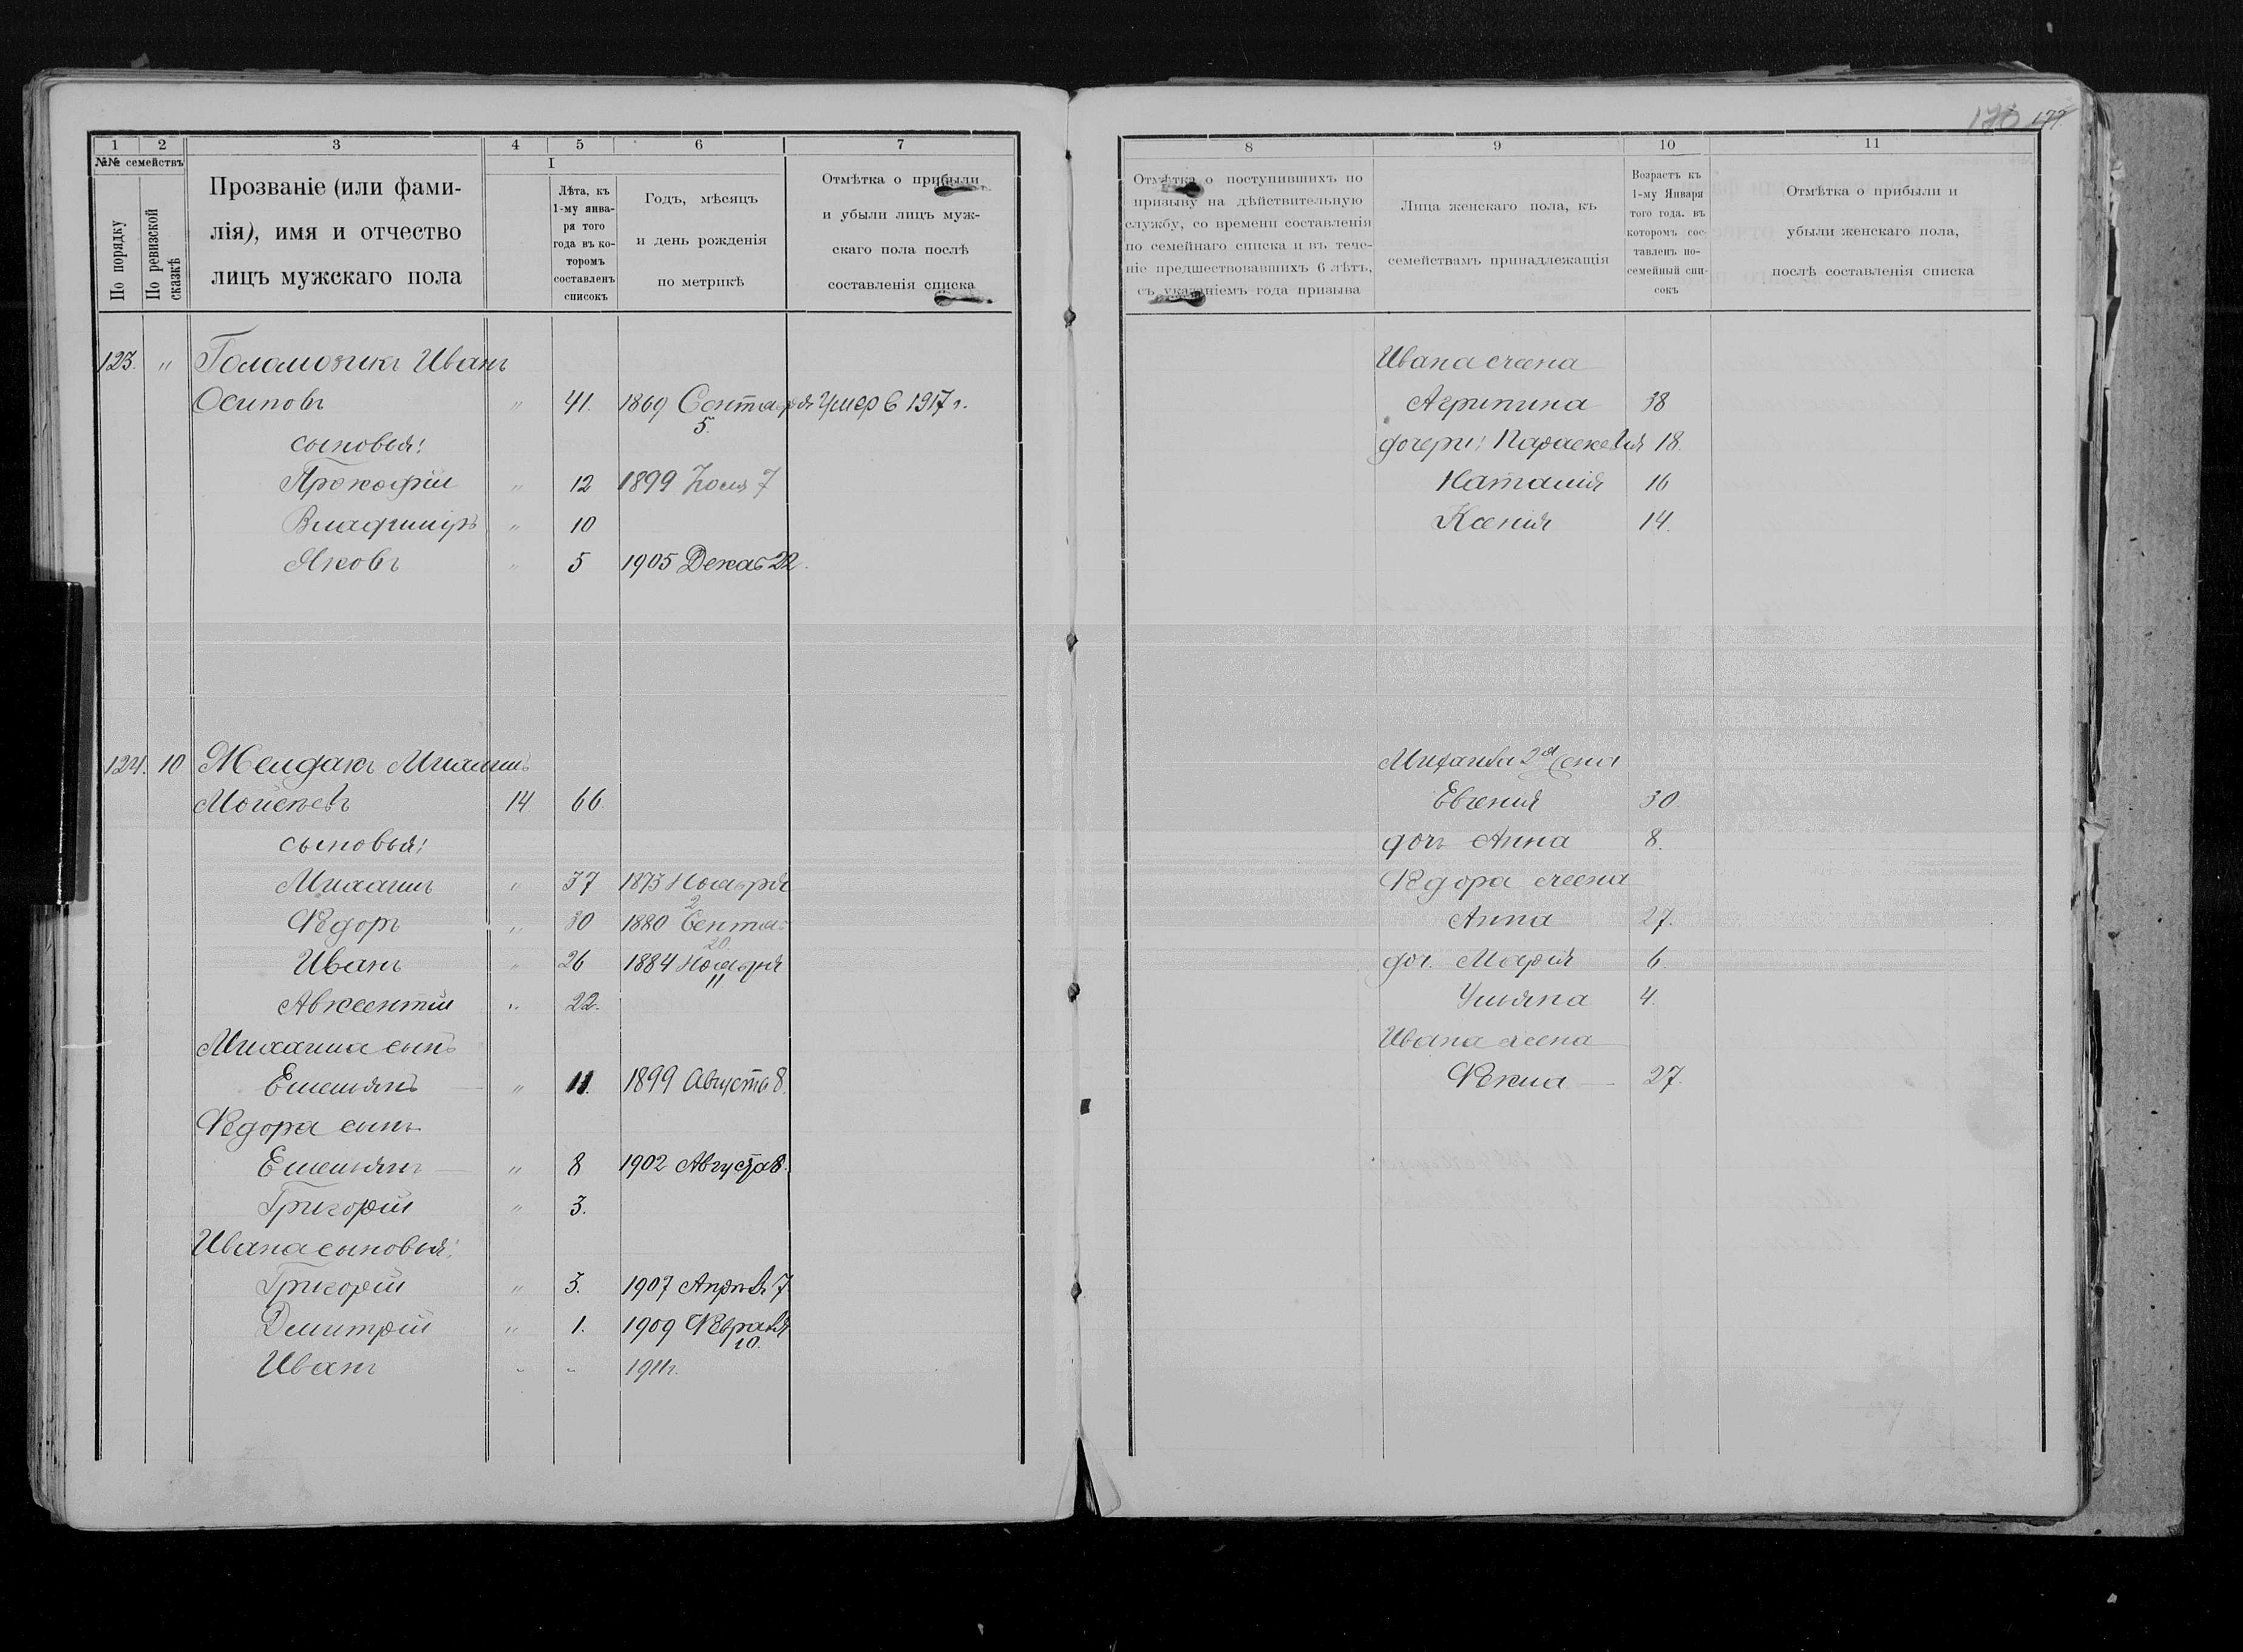 176 177
1 2 3 4 5 6 7
№№ семействъ
По порядку
По ревизской сказкѣ
Прозваніе (или фами-
лія), имя и отчество
лицъ мужскаго пола
I
Лѣта, къ
1-му янва-
ря того
года въ ко-
торомъ
составленъ
списокъ
Годъ, мѣсяцъ
и день рожденія
по метрикѣ
Отмѣтка о прибыли
и убыли лицъ муж-
скаго пола послѣ
составленія списка
123. " Голомозикъ Иванъ
Осиповъ " 41. 1869 Сентября Умер в 1917 г.
5.
сыновья:
Прокофій " 12 1899 Іюля 7
Владиміръ " 10
Яковъ " 5 1905 Декаб 22.
124. 10 Желдакъ Михаилъ
Мойсеевъ 14 66
сыновья:
Михаилъ " 37 1873 Ноября
2
Ѳедоръ " 30 1880 Сентяб
20.
Иванъ " 26 1884 Ноября
11
Авксентій " 22.
Михаила сынъ
Емельянъ " 11. 1899 Августа 8.
Ѳедора сынъ
Емельянъ " 8 1902 Августа 8.
Григорій " 3.
Ивана сыновья:
Григорій " 3. 1907 Апрѣля 7
Дмитрій " 1. 1909 Февраля
10.
Иванъ " " 1911 г.
8 9 10 11
Отмѣтка о поступившихъ по
призыву на дѣйствительную
службу, со времени составленія
по семейнаго списка и въ тече-
ніе предшествовавшихъ 6 лѣтъ,
съ указаніемъ года призыва
Лица женскаго пола, къ
семействамъ принадлежащія
Возрастъ къ
1-му Января
того года. въ
которомъ сос-
тавленъ по-
семейный спи-
сокъ
Отмѣтка о прибыли и
убыли женскаго пола,
послѣ составленія списка
Ивана жена
Агрипина 38
дочери: Параскевія 18.
Наталія 16
Ксенія 14.
Михаила 2я жена
Евгенія 30.
дочь Анна 8.
Ѳедора жена
Анна 27.
доч. Марія 6.
Ульяна 4.
Ивана жена
Ѳекла 27.